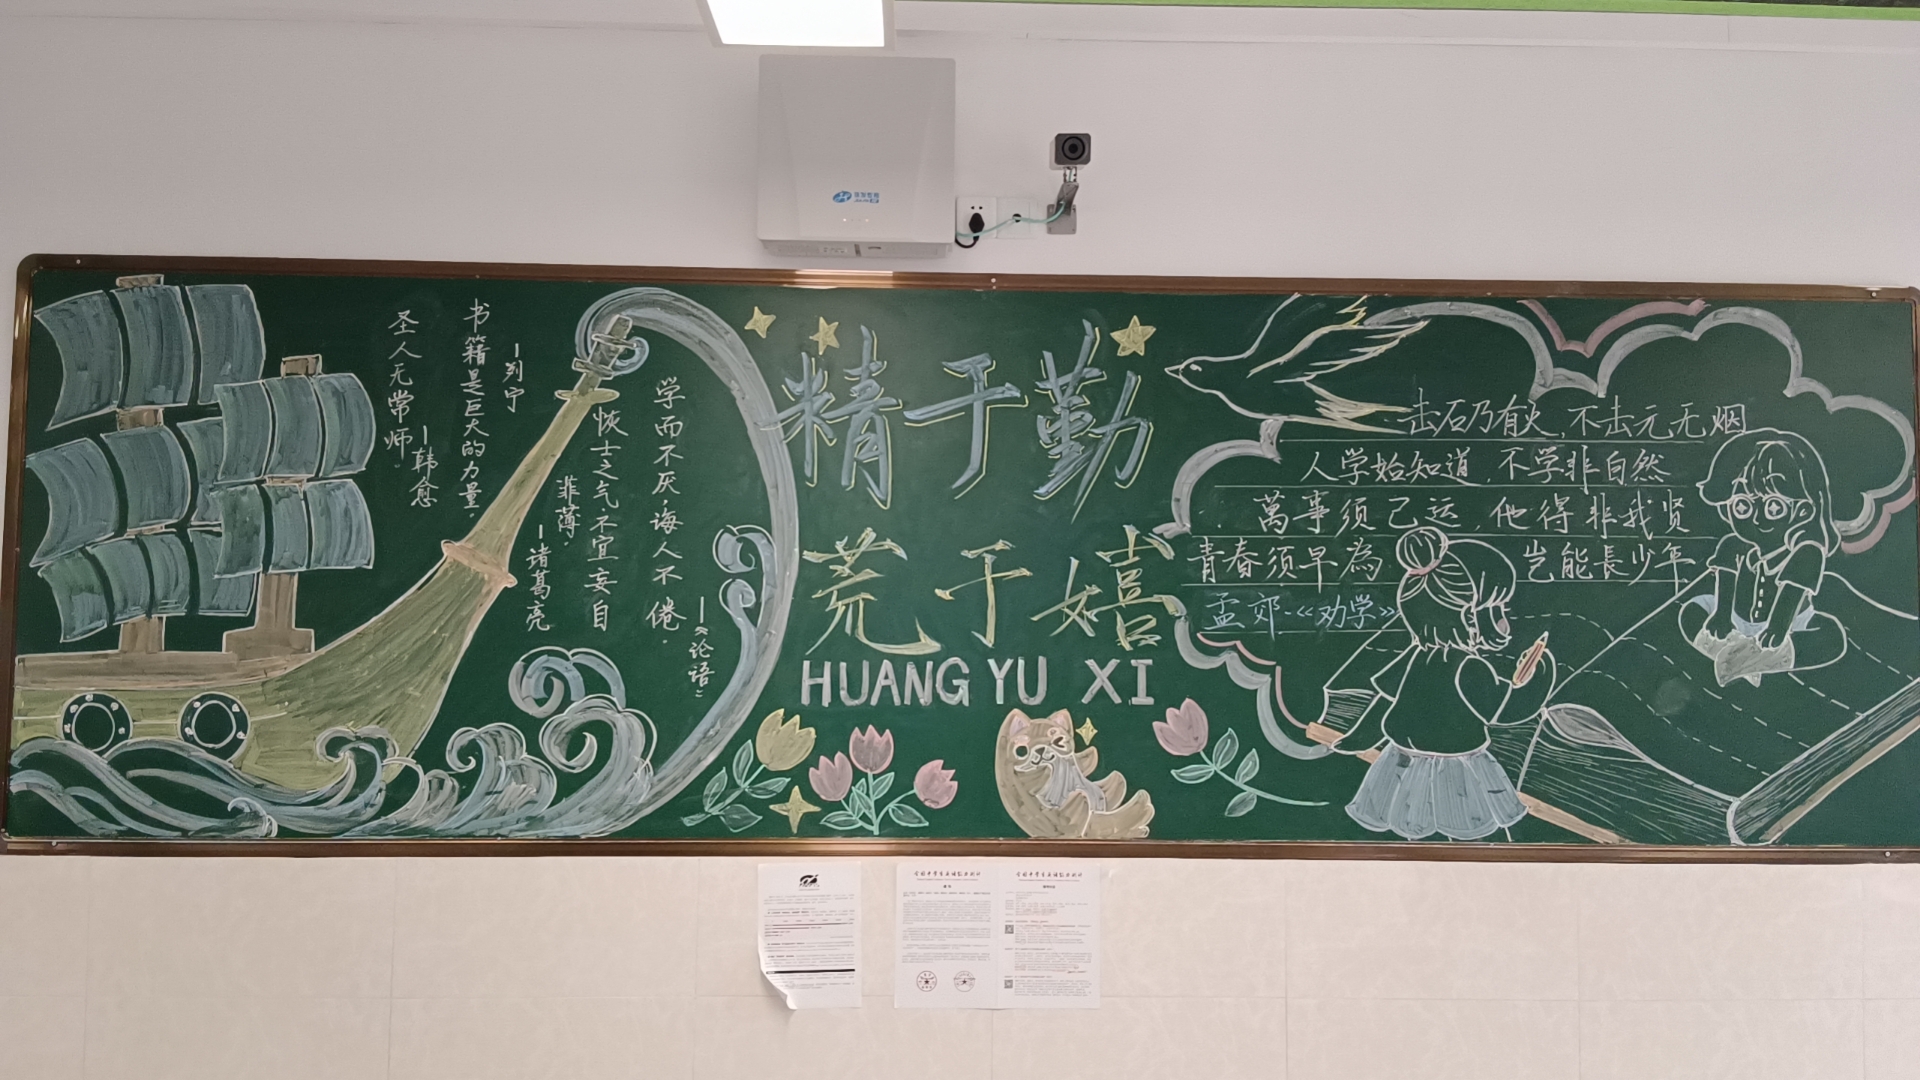 圣人无常师。
—韩愈
书籍是巨大的力量。
—列宁
恢士之气，不宜妄自
菲薄。
—诸葛亮
学而不厌，诲人不倦。
—《论语》
精于勤
荒于嬉
HUANG YU XI
击石乃有火，不击元无烟
人学始知道，不学非自然
萬事须己运，他得非我贤
青春须早為 岂能長少年
孟郊·《劝学》